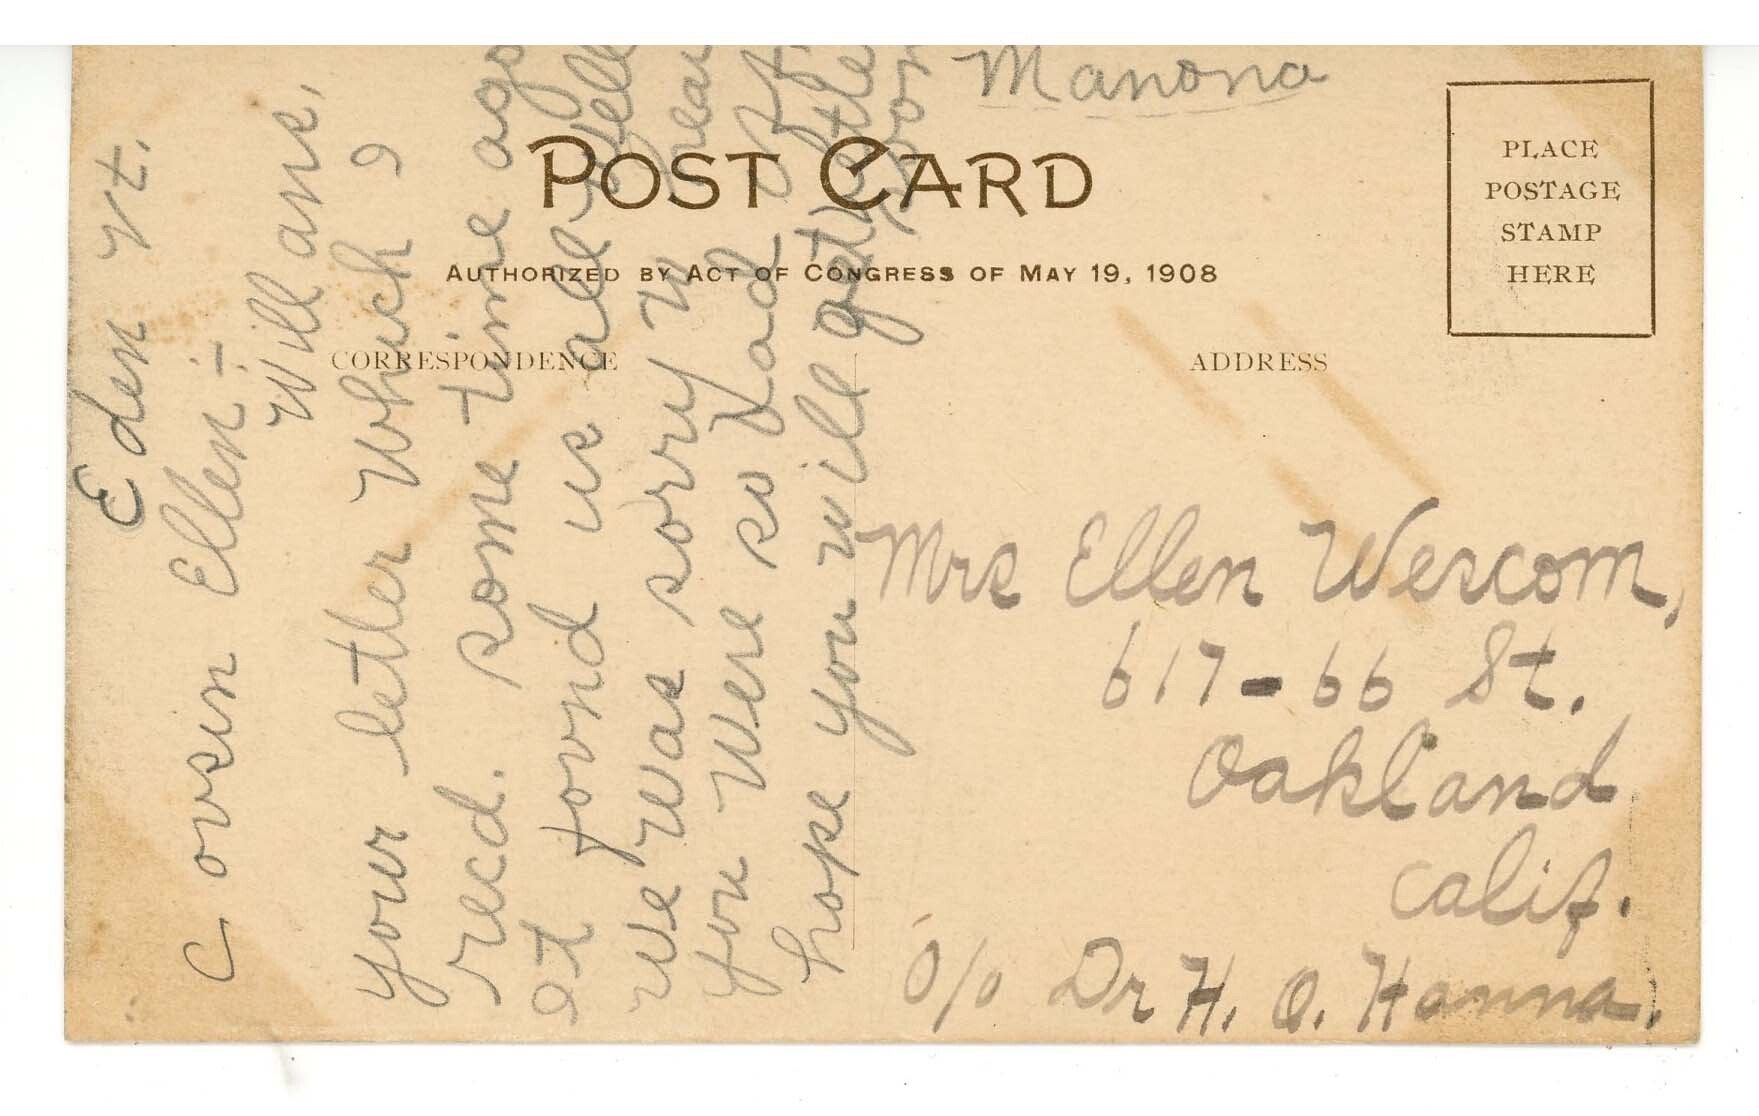 Manona
POST CARD
AUTHORIZED BY ACT OF CONGRESS OF MAY 19, 1908
PLACE
POSTAGE
STAMP
HERE
CORRESPONDENCE
ADDRESS
Eden Vt.
Cousin Ellen:-
Will ans,
your letter which I
recd. some time ago
et found us all well
We was sorry to hear
you were so bad off
hope you will get
soon
Mrs Ellen Wescom,
617-66 St.
Oakland
Calif.
c/o Dr H. O. Hanna.